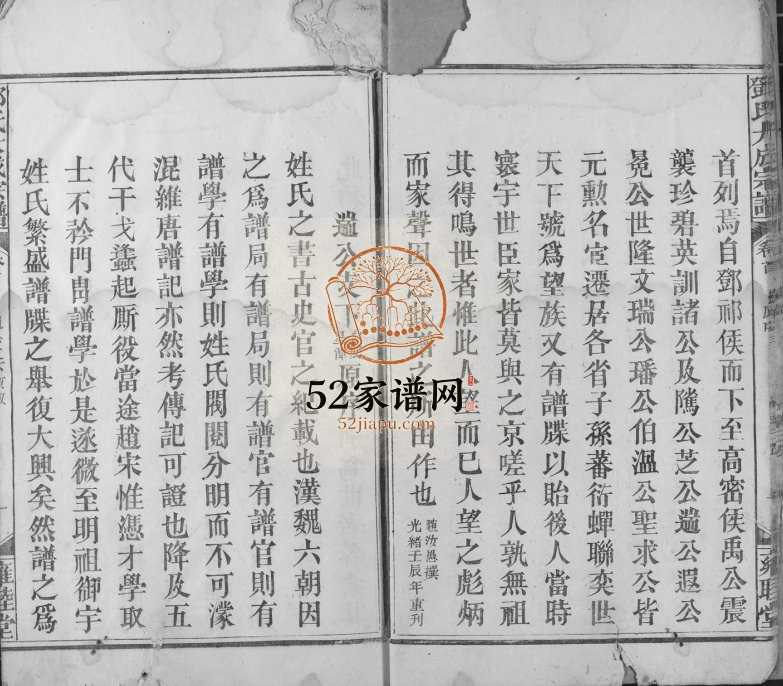 鄧氏大成宗譜
首列焉自鄧祁侯而下至高密侯禹公震
襲珍碧英訓諸公及隲公芝公遄公遐公
冕公世隆文瑞公璠公伯溫公聖求公皆
元勲名宦遷居各省子孫蕃衍蟬聯奕世
天下號爲望族又有譜牒以貽後人當時
寰宇世臣家皆莫與之京嗟乎人孰無祖
其得鳴世者惟此人望而已人望之彪炳
而家聲因之此譜之所由作也
光緒壬辰年重刊
遄公支下
姓氏之書古史官之總載也漢魏六朝因
之爲譜局有譜局則有譜官有譜官則有
譜學有譜學則姓氏閥閱分明而不可濛
混維唐譜記亦然考傳記可證也降及五
代干戈蠭起厮役當途趙宋惟憑才學取
士不矜門冑譜學於是遂微至明祖御宇
姓氏繁盛譜牒之舉復大興矣然譜之爲
雍睦堂
52家谱网
52jiapu.com